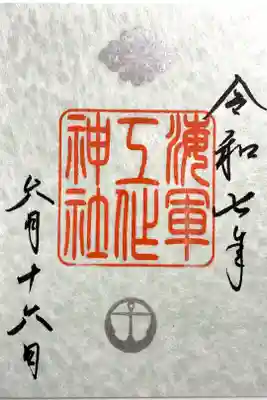 令和七年
海軍
工作
神社
六月十六日